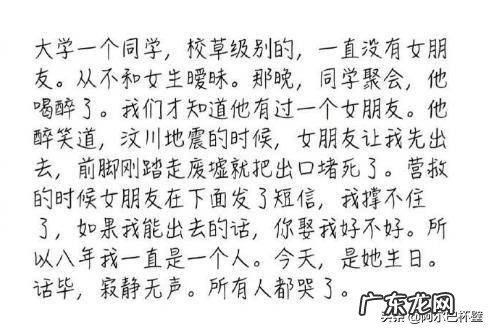 大学一个同学，校草级别的，一直没有女朋
友。从不和女生暧昧。那晚，同学聚会，他
喝醉了。我们才知道他有过一个女朋友。他
醉笑道，汶川地震的时候，女朋友让我先出
去，前脚刚踏走废墟就把出口堵死了。营救
的时候女朋友在下面发了短信，我撑不住
了，如果我能出去的话，你娶我好不好。所
以八年我一直是一个人。今天，是她生日。
话毕，寂静无声。所有人都哭了。
广东龙网
头条 @阿尔巴杯壁